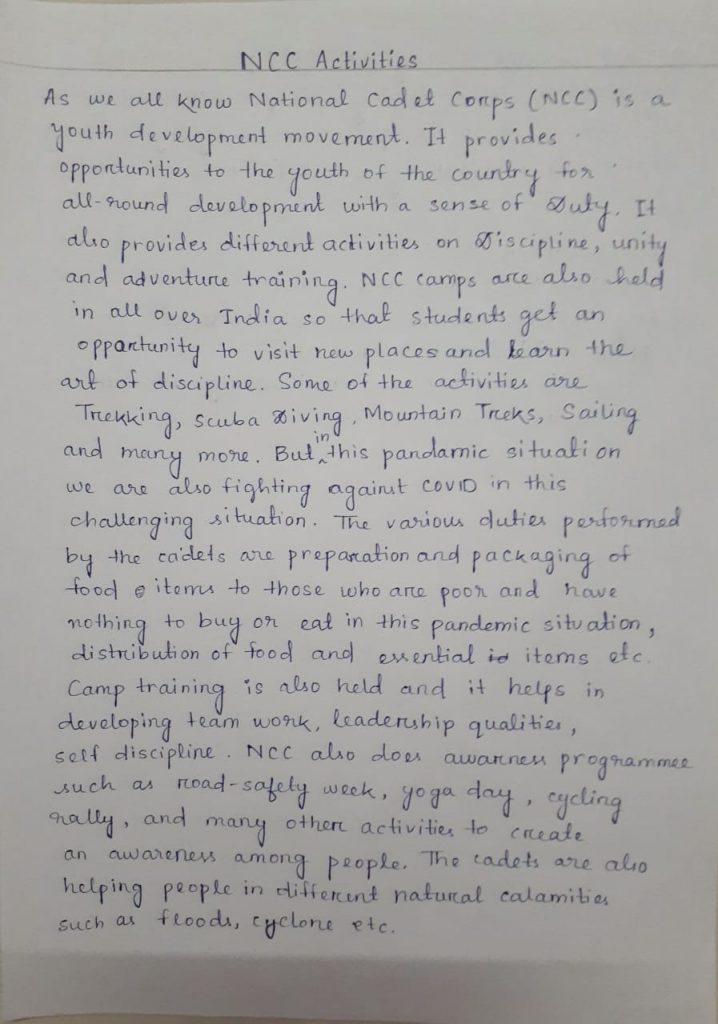 NCC Activities
As we all know National Cadet Corps (NCC) is a
youth development movement. It provides
opportunities to the youth of the country for
all-round development with a sense of Duty. It
also provides different activities on Discipline, unity
and adventure training. NCC camps are also held
in all over India so that students get an
oppartunity to visit new places and learn the
art of discipline. Some of the activities are
Trekking, scuba Diving, Mountain Treks, Sailing
and many more. But in this pandamic situation
we are also fighting against COVID in this
challenging situation. The various duties performed
by the cadets are preparation and packaging of
food items to those who are poor and have
nothing to buy or eat in this pandemic situation,
distribution of food and essential items etc.
Camp training is also held and it helps in
developing team work, leadership qualities,
self discipline. NCC also does awarness programmee
such as road-safety week, yoga day, cycling
rally, and many other activities to create
an awareness among people. The cadets are also
helping people in different natural calamities
such as floods, cyclone etc.